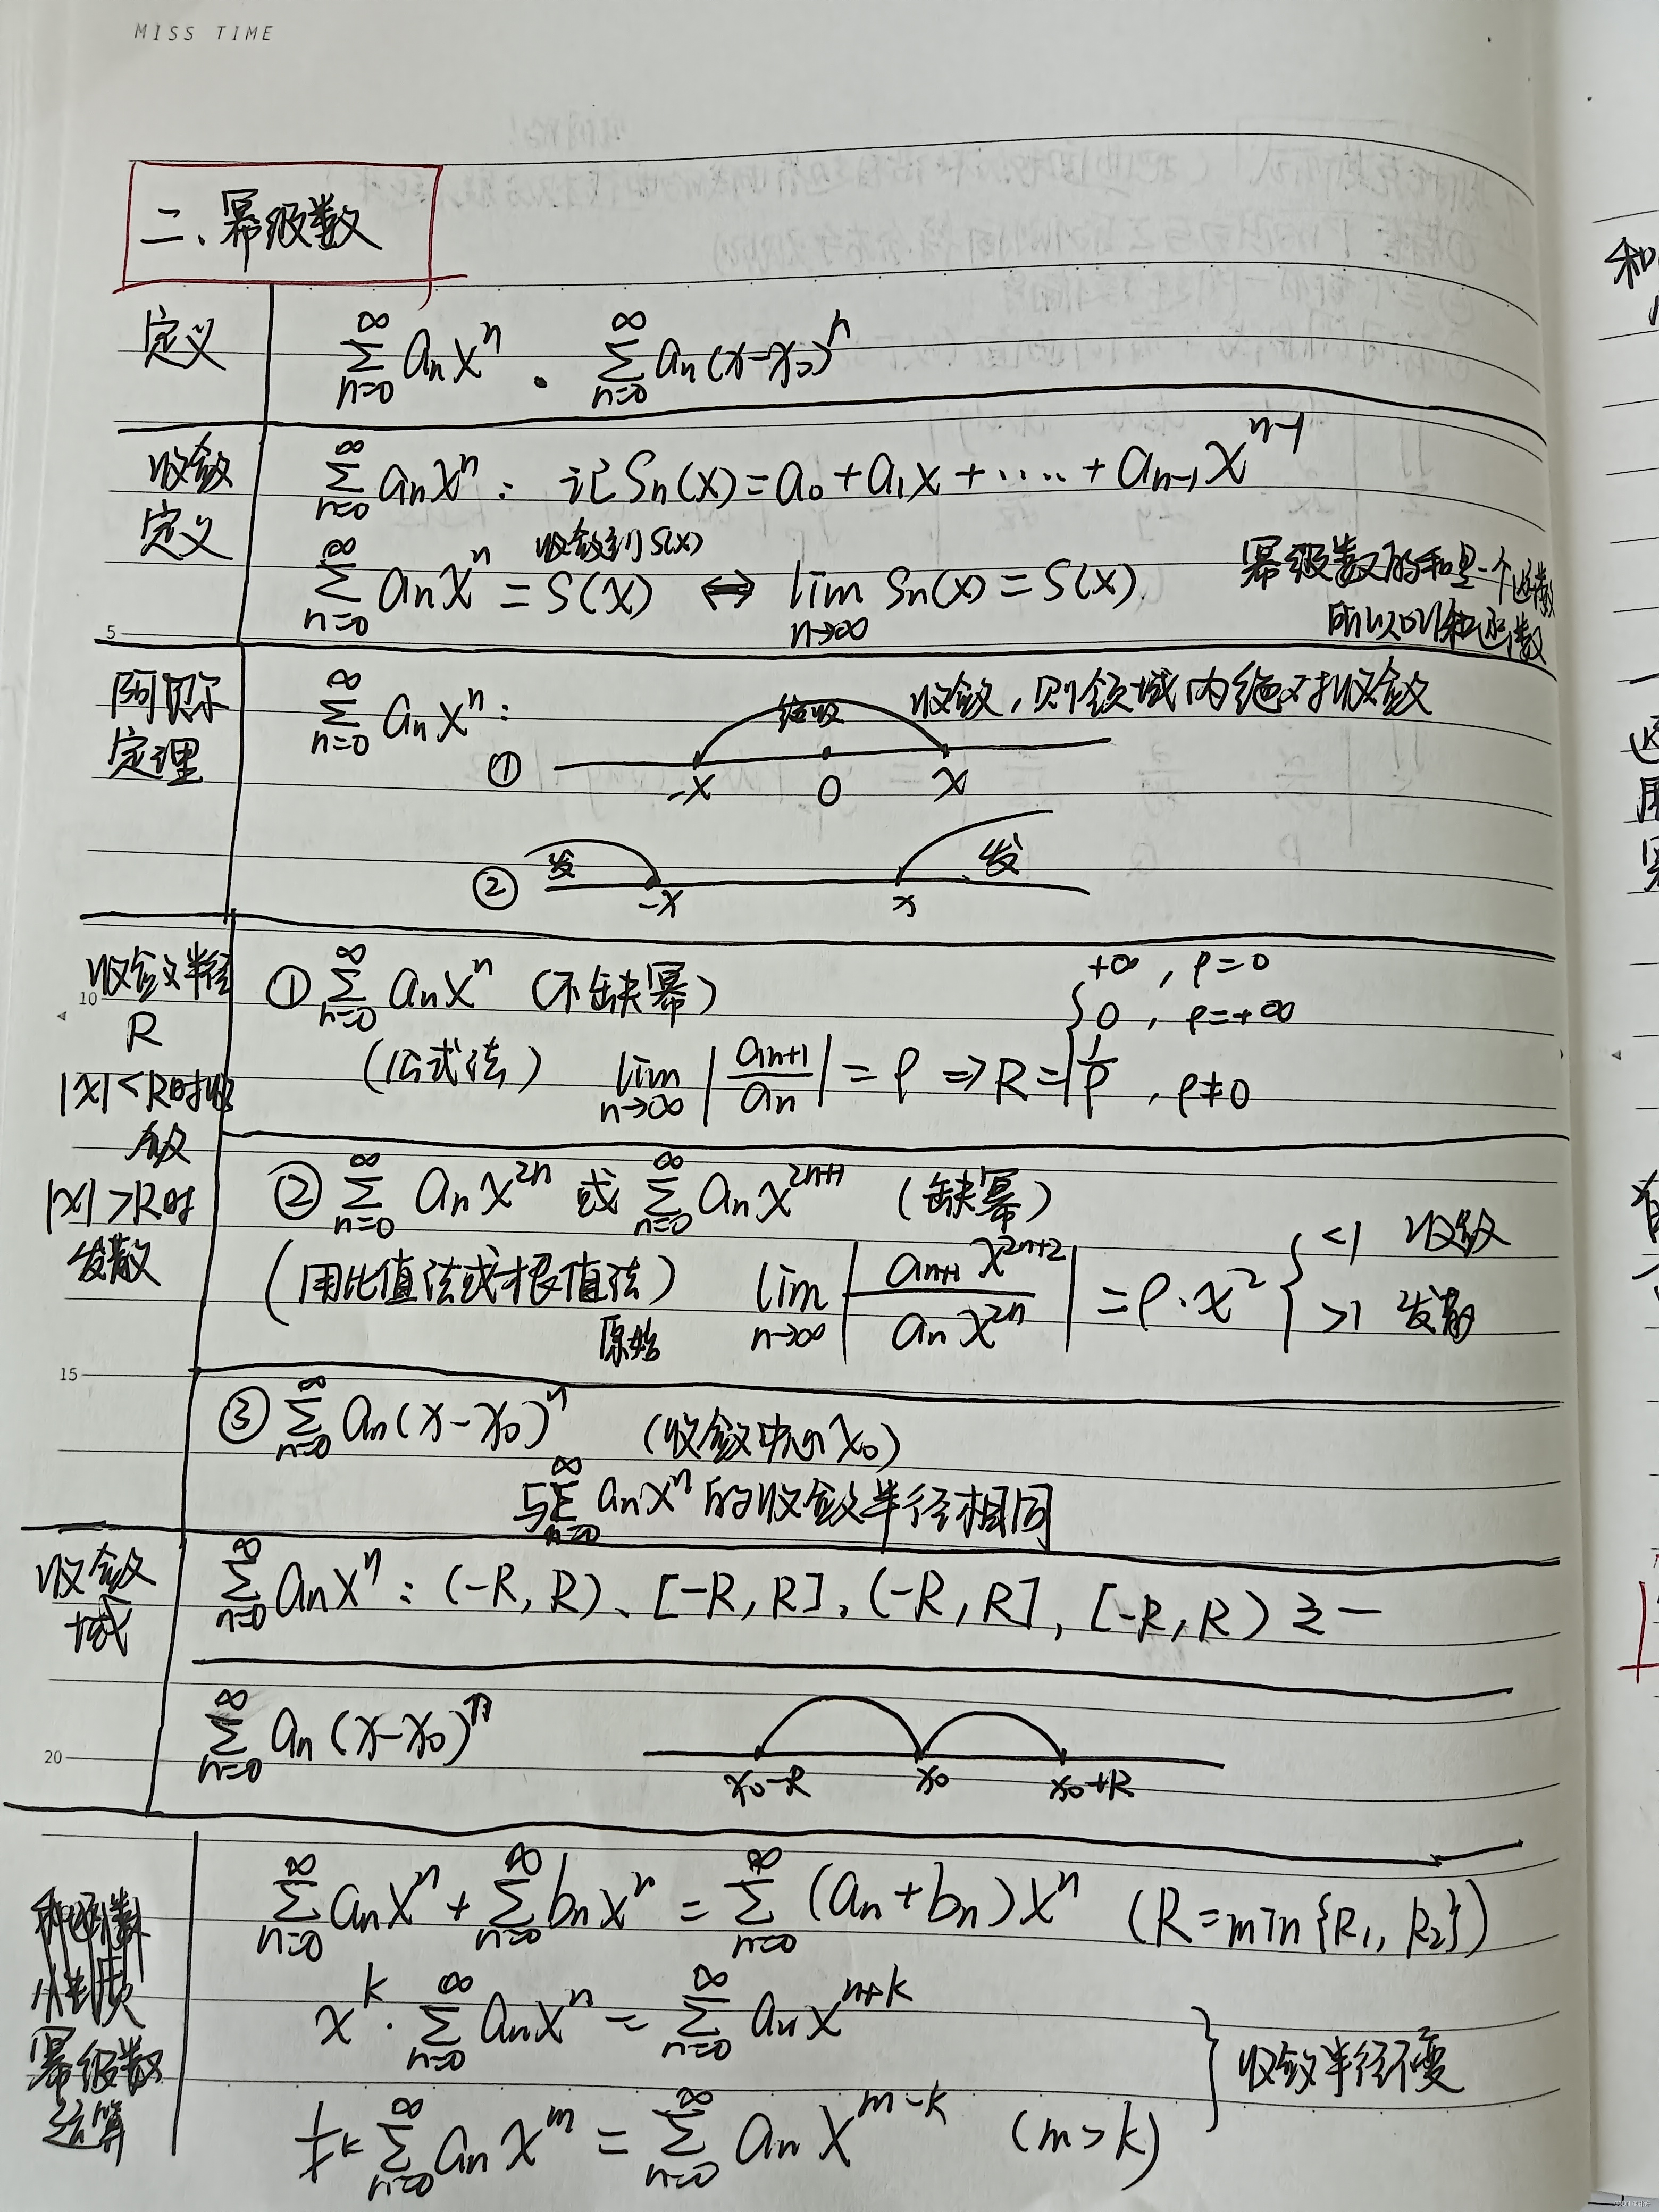 MISS TIME
二、幂级数
定义
∑_{n=0}^{∞} aₙxⁿ . ∑_{n=0}^{∞} aₙ(x-x₀)ⁿ
收敛定义
∑_{n=0}^{∞} aₙxⁿ: 记Sₙ(x)=a₀+a₁x+·····+aₙ₋₁xⁿ⁻¹
收敛到S(x)
∑_{n=0}^{∞} aₙxⁿ=S(x) ⇔ lim_{n→∞} Sₙ(x)=S(x).
幂级数的和是一个函数
所以叫和函数
阿贝尔定理
∑_{n=0}^{∞} aₙxⁿ: 绝收 收敛,则领域内绝对收敛
① -x 0 x
发 发
② -x x
收敛半径
R
|x|<R时收敛
|x|>R时发散
① ∑_{n=0}^{∞} aₙxⁿ (不缺幂)
(公式法) lim_{n→∞} |aₙ₊₁/aₙ|=ρ ⇒ R={
+∞ , ρ=0
0 , ρ=+∞
1/ρ , ρ≠0
② ∑_{n=0}^{∞} aₙx²ⁿ 或 ∑_{n=0}^{∞} aₙx²ⁿ⁺¹ (缺幂)
(用比值法或根值法) lim_{n→∞} |aₙ₊₁x²ⁿ⁺²/aₙx²ⁿ|=ρ·x² {
<1 收敛
>1 发散
原始
③ ∑_{n=0}^{∞} aₙ(x-x₀)ⁿ (收敛中心为x₀)
与∑_{n=0}^{∞} aₙxⁿ的收敛半径相同
收敛域
∑_{n=0}^{∞} aₙxⁿ: (-R, R)、[-R, R]、(-R, R], [-R, R) 之一
∑_{n=0}^{∞} aₙ(x-x₀)ⁿ
x₀-R x₀ x₀+R
幂级数运算
∑_{n=0}^{∞} aₙxⁿ+∑_{n=0}^{∞} bₙxⁿ=∑_{n=0}^{∞} (aₙ+bₙ)xⁿ (R=min{R₁, R₂})
xᵏ·∑_{n=0}^{∞} aₙxⁿ=∑_{n=0}^{∞} aₙxⁿ⁺ᵏ
1/xᵏ ∑_{n=0}^{∞} aₙxᵐ=∑_{n=0}^{∞} aₙxᵐ⁻ᵏ (m>k)
} 收敛半径不变
5
10
15
20